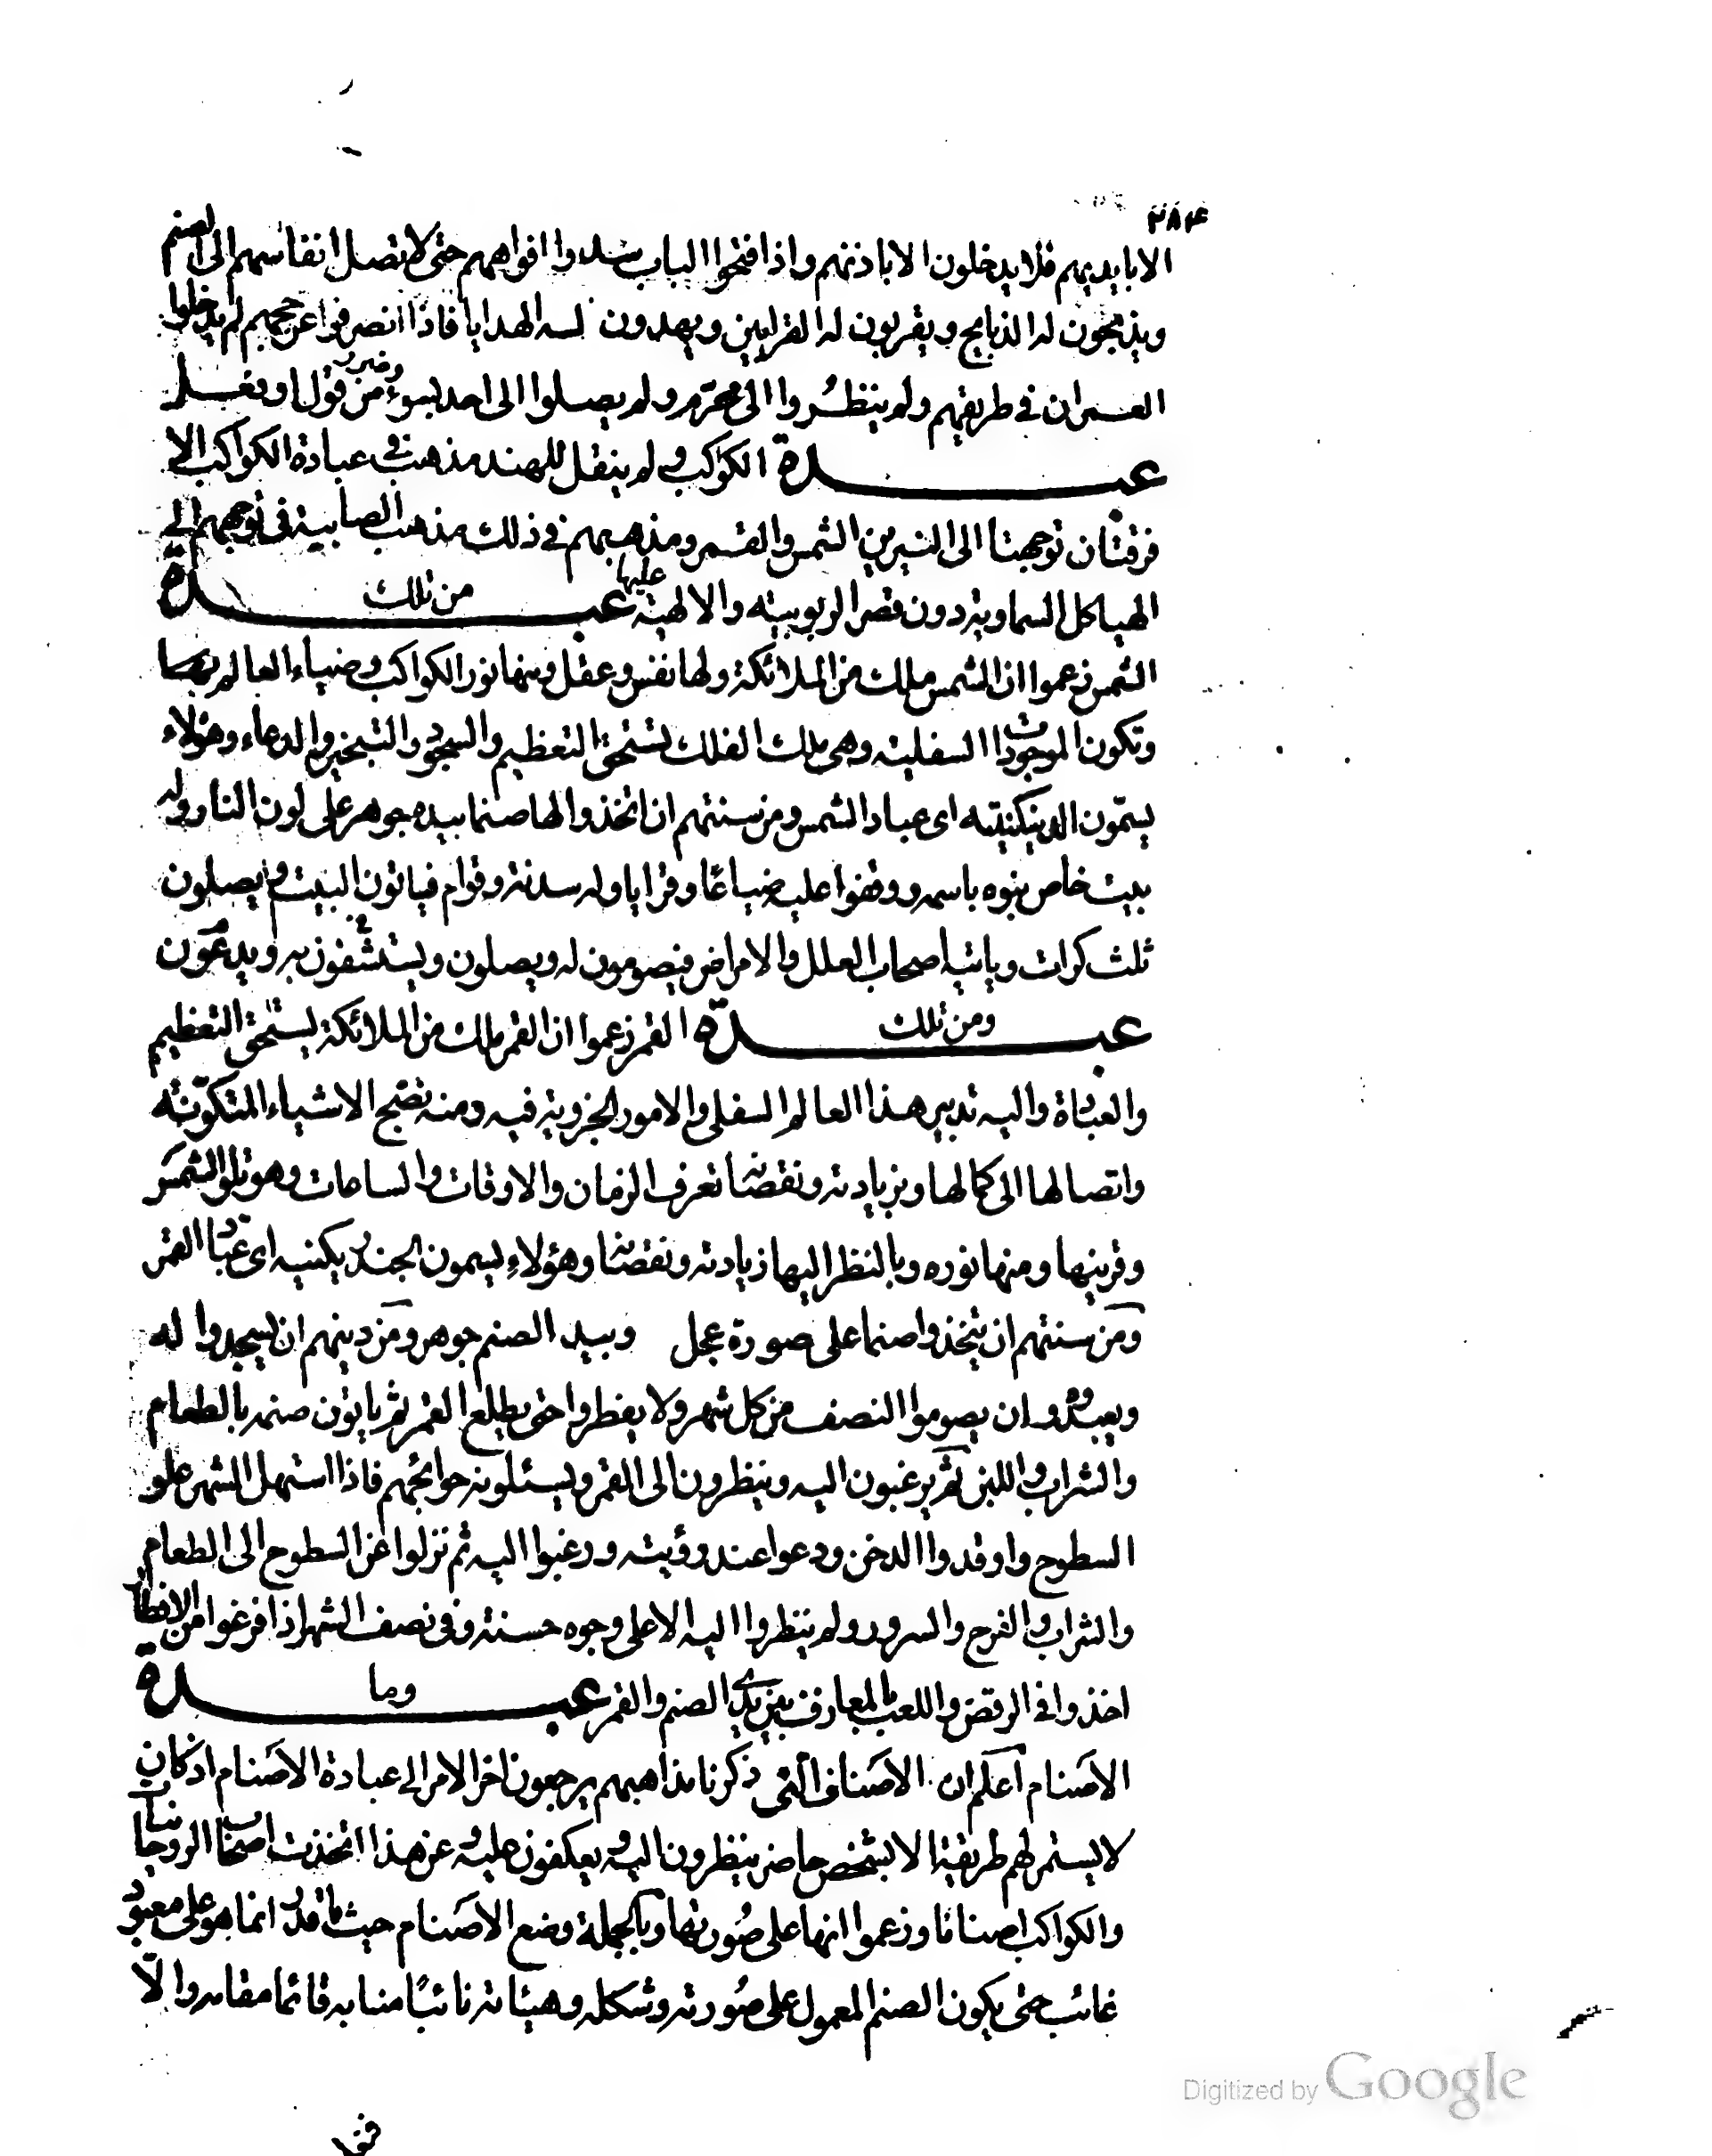 ٢٨٤
الا بايديهم فلا يدخلون الا باذنهم واذا فتحوا الباب سدوا افواههم حتى لا تصل انفاسهم الى الصنم
ويذبحون له الذبايح ويقربون له القرابين ويهدون له الهدايا فاذا انصرفوا عن حجهم لم يدخلوا
العمران في طريقهم ولم ينظروا الى محرم ولم يصلوا الى احد بسوء وضرر من قول او فعل
عبدة الكواكب ولم ينقل للهند مذهب في عبادة الكواكب الا
فرقتان توجهتا الى النيرين الشمس والقمر ومذهبهم في ذلك مذهب الصابية في توجههم الى
الهياكل السماوية دون قصر الربوبية والالهية عليها عبدة من تلك
الشمس زعموا ان الشمس ملك من الملائكة ولها نفس وعقل ومنها نور الكواكب وضياء العالم بها
وتكون الموجودات السفلية وهى ملك الفلك تستحق التعظيم والسجود والتبخير والدعاء وهؤلاء
يسمّون الدينيكيتيه اى عباد الشمس ومن سنتهم ان اتخذوا لها صنما بيده جوهر على لون النار وله
بيت خاص بنوه باسمه ووقفوا عليه ضياعًا وقرايا وله سدنة وقوام فياتون البيت ويصلون
ثلث كرات وياتيه اصحاب العلل والامراض فيصومون له ويصلون ويستشفون به ويدعون
عبدة ومن تلك القمر زعموا ان القمر ملك من الملائكة يستحق التعظيم
والعبادة واليه تدبير هذا العالم السفلى والامور الجزوية فيه ومنه نضج الاشياء المتكوّنة
واتصالها الى كمالها وبزيادته ونقصانه تعرف الزمان والاوقات والساعات وهو تلو الشمس
وقرينها ومنها نوره وبالنظر اليها زيادته ونقصانه وهؤلاء يسمون الجندريكنيه اى عبّاد القمر
ومن سنتهم ان يتخذوا صنما على صورة عجل وبيد الصنم جوهر ومن دينهم ان يسجدوا له
ويعبدوه وان يصوموا النصف من كل شهر ولا يفطروا حتى يطلع القمر ثم ياتون صنمه بالطعام
والشراب واللبن ثم يرغبون اليه وينظرون الى القمر ويسئلونه حوائجهم فاذا استهل الشهر علو
السطوح واوقدوا الدخن ودعوا عند رؤيته ورغبوا اليه ثم نزلوا عن السطوح الى الطعام
والشراب والفرح والسرور ولم ينظروا اليه الا على وجوه حسنة وفى نصف الشهر اذا فرغوا من الافطار
اخذوا في الرقص واللعب بالمعازف بين يدى الصنم والقمر عبدة وما
الاصنام اعلم ان الاصناف التى ذكرنا مذاهبهم يرجعون اخر الامر الى عبادة الاصنام اذ كان
لا يستمر لهم طريقة الا بشخص حاضر ينظرون اليه ويعكفون عليه وعن هذا اتخذت اصحاب الروحانيات
والكواكب اصناما وزعموا انها على صُورتها وبالجملة وضع الاصنام حيث ما قدر انما هو على معبود
غائب حتى يكون الصنم المعمول على صُورته وشكله وهيئاته نائبًا منابه قائما مقامه والّا